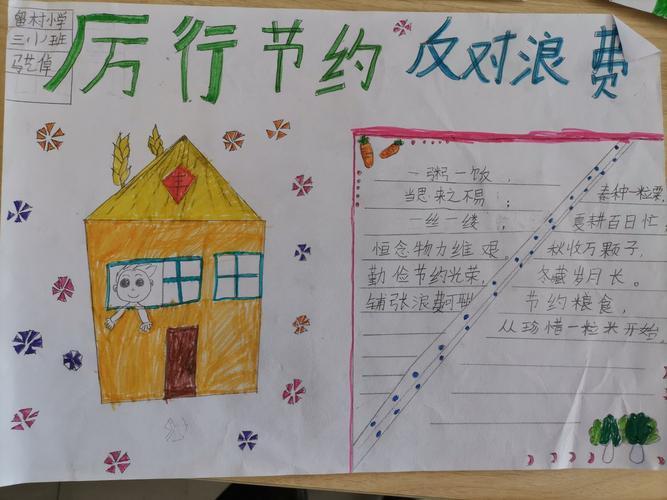 留村小学
三小班
马艺倬
厉行节约 反对浪费
丰
一粥一饭，
当思来之不易；
一丝一缕，
恒念物力维艰
勤俭节约光荣，
铺张浪费可耻
春种一粒粟，
夏耕百日忙，
秋收万颗子，
冬藏岁月长。
节约粮食
从珍惜一粒米开始，